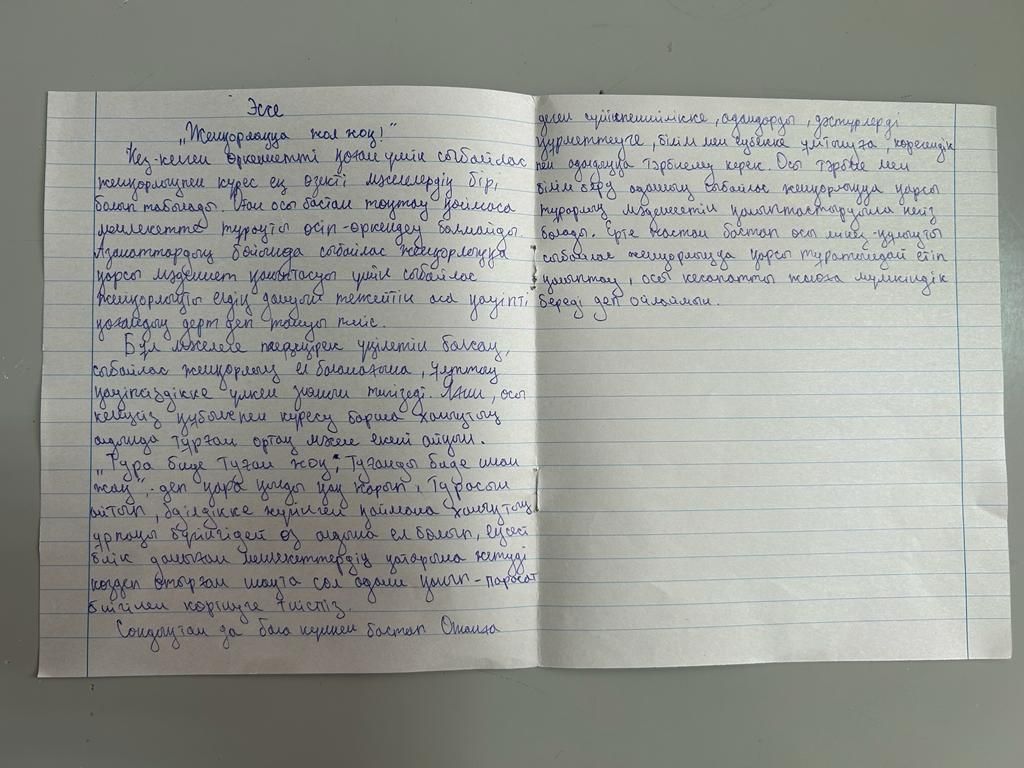 Эссе
„Жемқорлыққа жол жоқ!"
Кез-келген өркениетті қоғам үшін сыбайлас
жемқорлықпен күрес ең өзекті мәселелердің бірі
болып табылады. Оған осы бастан тоқтау қоймаса
мемлекетте тұрақты өсіп-өркендеу болмайды.
Азаматтардың бойында сыбайлас жемқорлыққа
қарсы мәдениет қалыптасуы үшін сыбайлас
жемқорлықты елдің дамуын тежейтін аса қауіпті
қоғамдық дерт деп тануы тиіс.
Бұл мәселеге тереңірек үңілетін болсақ,
сыбайлас жемқорлық ел болашағына, ұлттық
қауіпсіздікке үлкен зиянын тигізеді. Яғни, осы
келеңсіз құбылыспен күресу барша халықтың
алдында тұрған ортақ мәселе екені айқын.
„Тура биде туған жоқ, Туғанды биде иман
жоқ",-деп қара қылды қақ жарып, Турасын
айтып, әділдікке жүгінген қаймана халықтың
ұрпағы бүгінгідей өз алдына ел болып, еңселі
биік дамыған мемлекеттердің қатарына жетуді
көздеп отырған шақта сол адами қалып-парасат
биігінен көрінуге тиіспіз.
Сондықтан да бала күннен бастап Отанға
деген сүйіспеншілікке, адамдарды, дәстүрлерді
құрметтеуге, білім мен еңбекке ұмтылуға, көрегендік
пен адалдыққа тәрбиелеу керек. Осы тәрбие мен
білім беру адамның сыбайлас жемқорлыққа қарсы
тұрарлық мәдениетін қалыптастыруына негіз
болады. Ерте жастан бастап осы мінез-құлықты
сыбайлас жемқорлыққа қарсы тұратындай етіп
қалыптау, осы кесапатты жоюға мүмкіндік
береді деп ойлаймын.